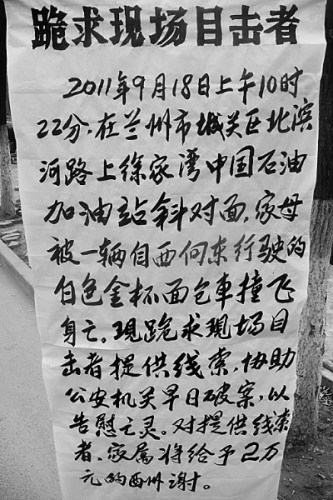 跪求现场目击者
2011年9月18日上午10时
22分，在兰州市城关区北滨
河路上徐家湾中国石油
加油站斜对面，家母
被一辆自西向东行驶的
白色金杯面包車撞飞
身亡。现跪求现场目
击者提供线索，协助
公安机关早日破案，以
告慰之灵。对提供线索
者，家属将给予2万
元的酬谢。